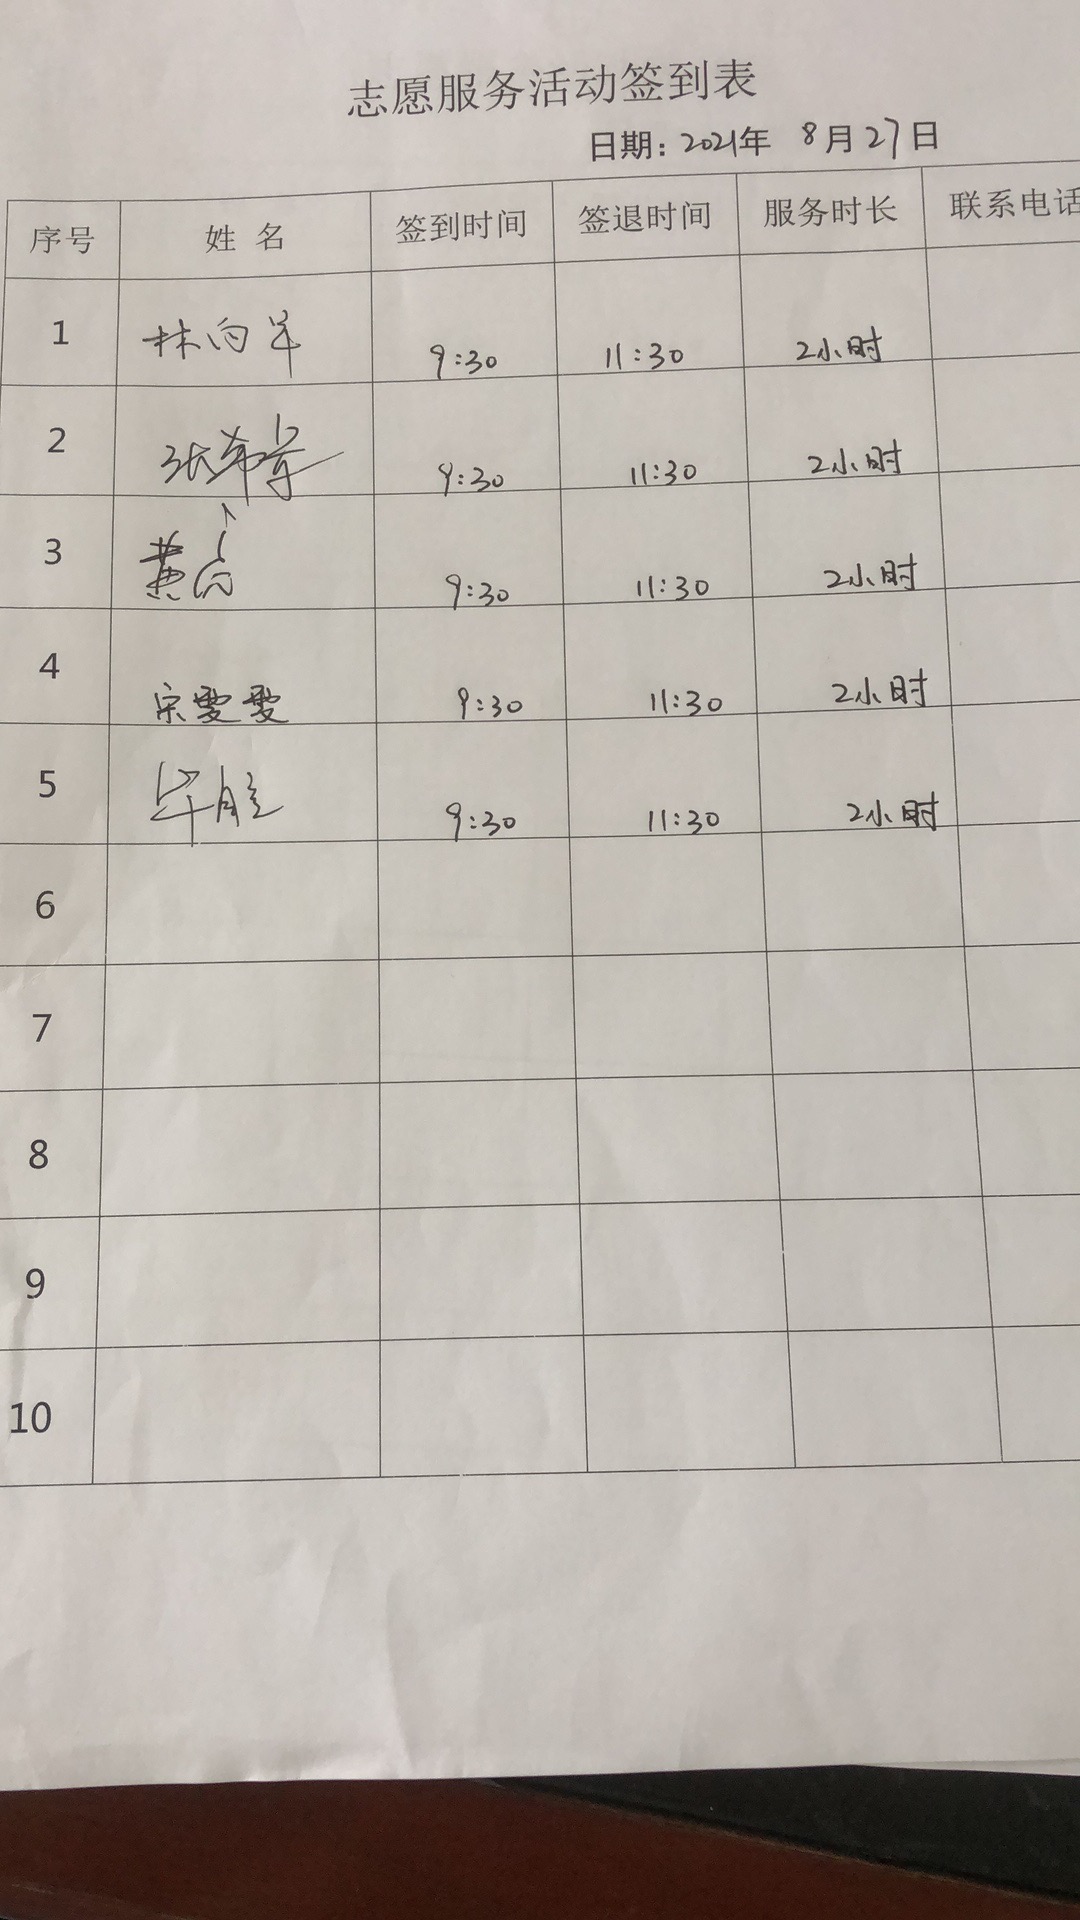 志愿服务活动签到表
日期：2021年 8月27日
序号 姓名 签到时间 签退时间 服务时长 联系电话
1 林向羊 9:30 11:30 2小时
2 9:30 11:30 2小时
3 黄向 9:30 11:30 2小时
4 宋雯雯 9:30 11:30 2小时
5 9:30 11:30 2小时
6
7
8
9
10